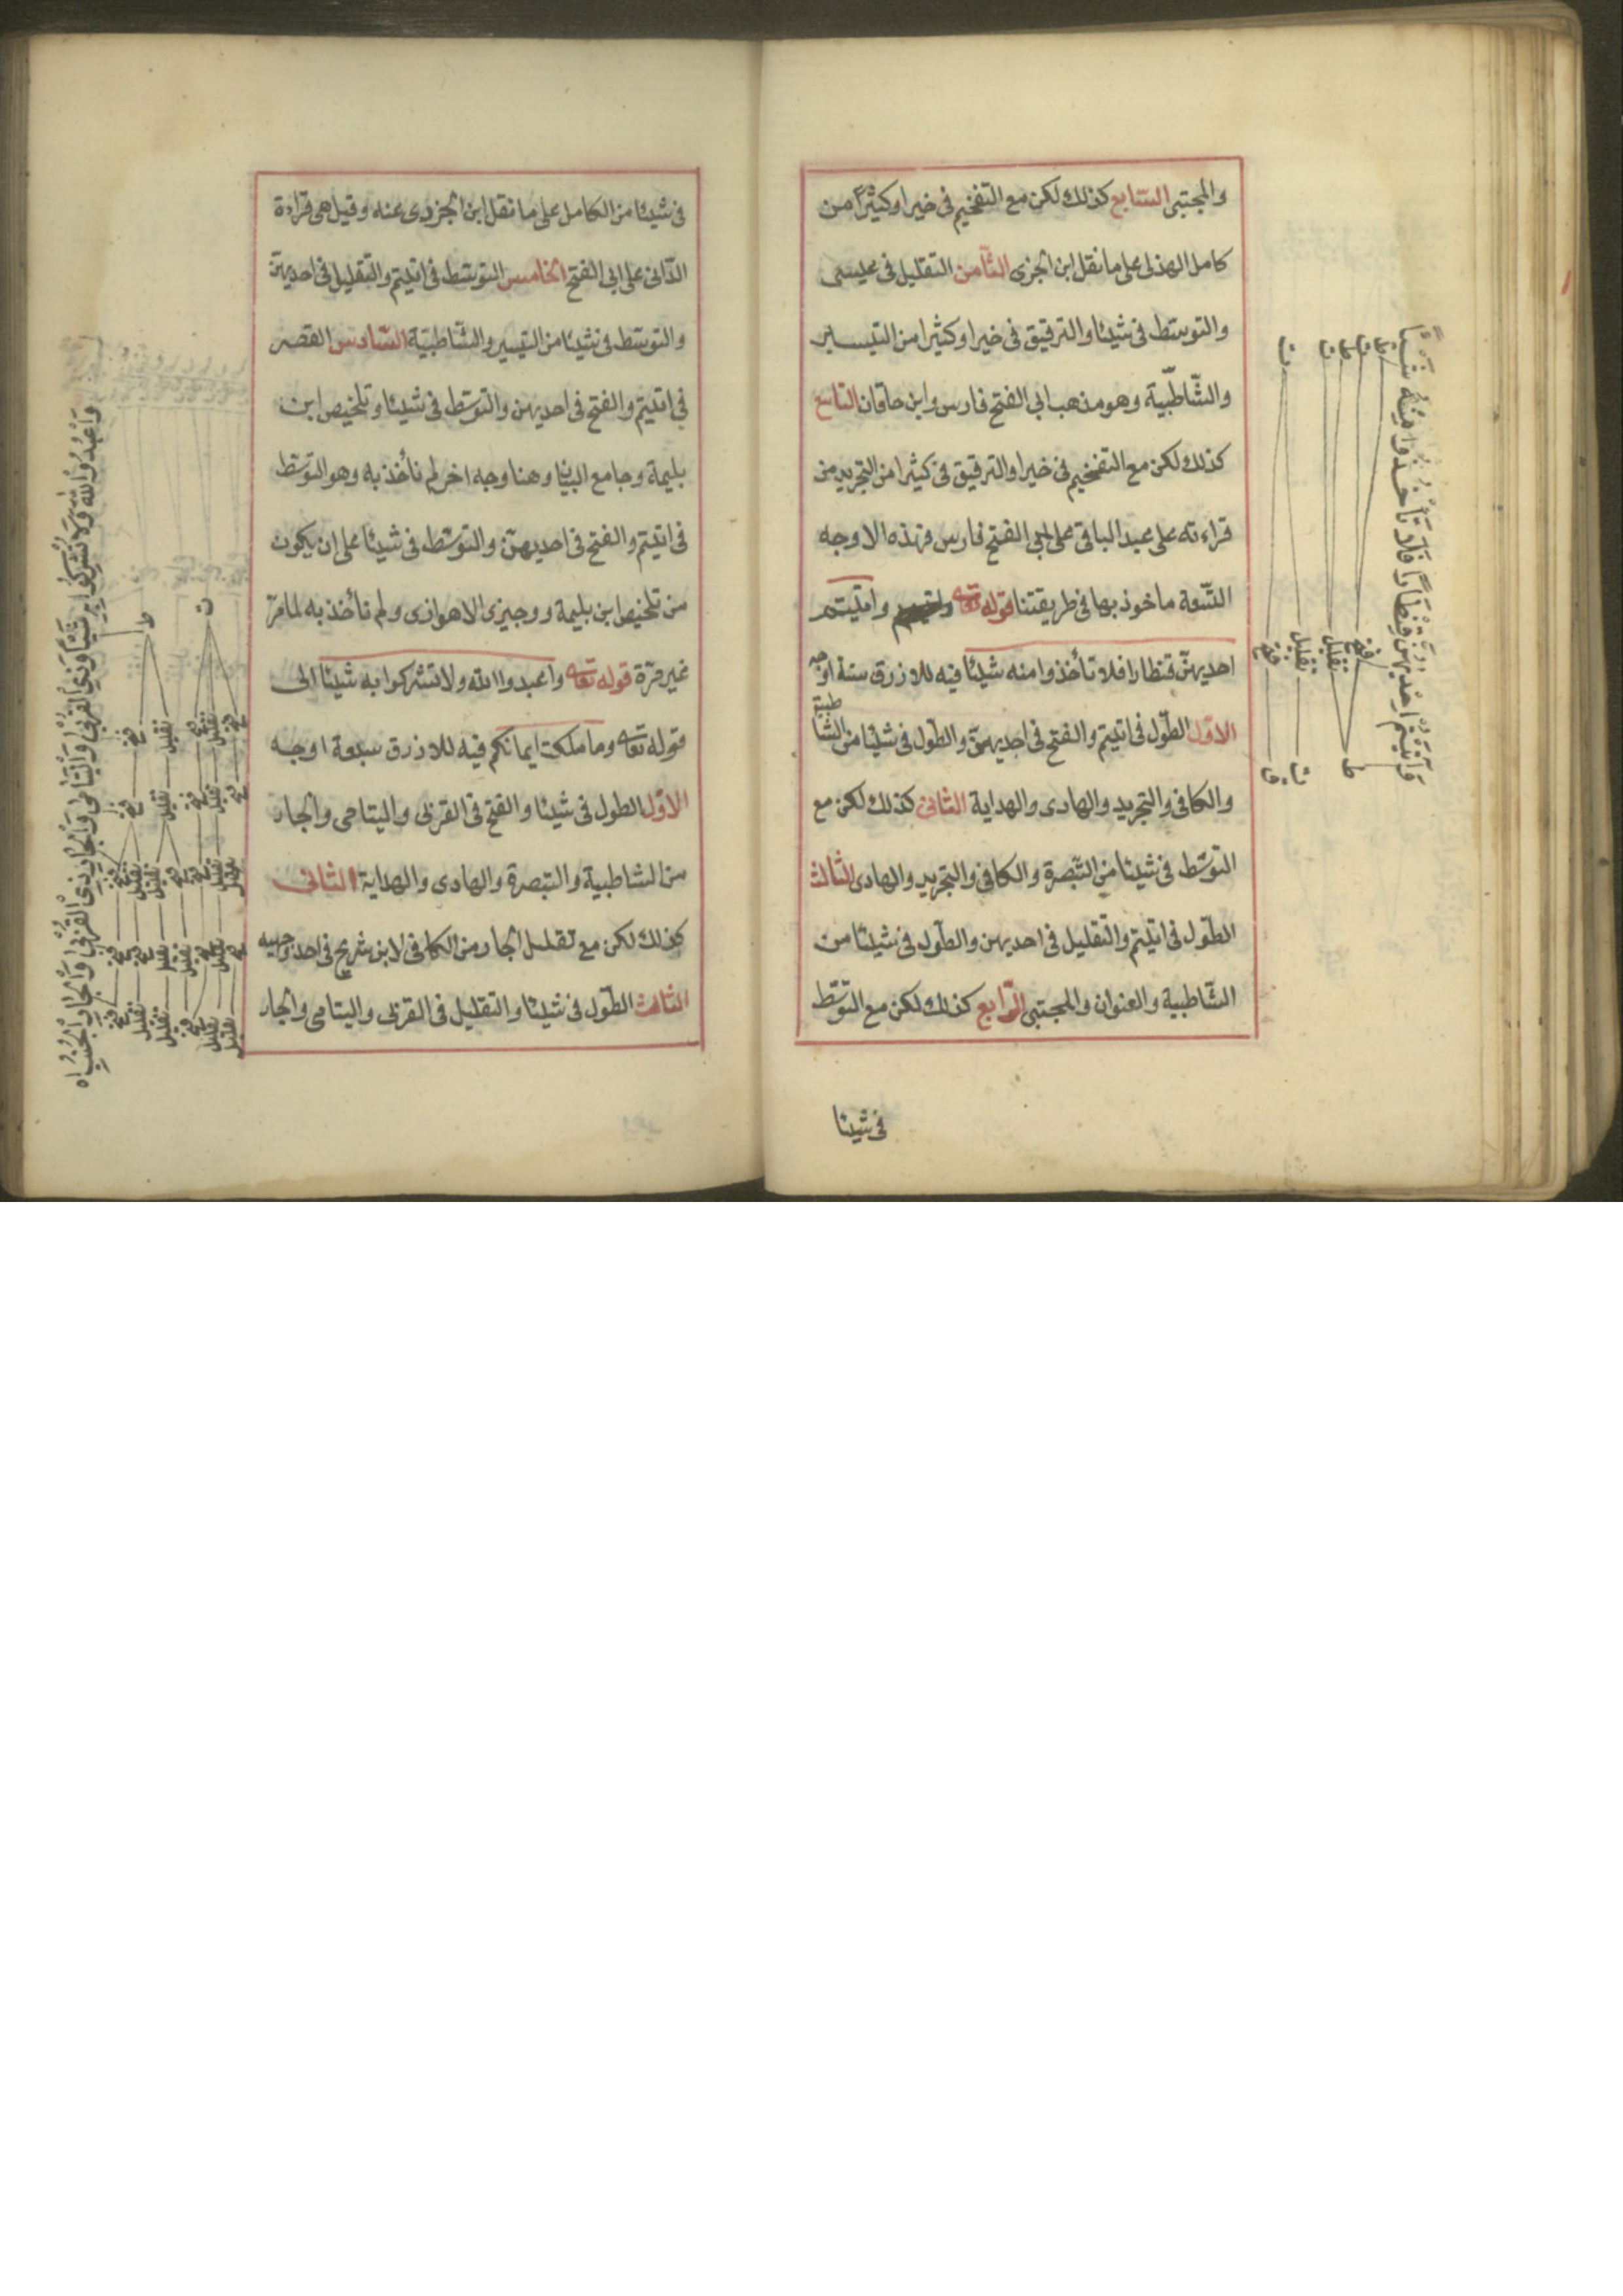 والمجتبى السابع كذلك لكن مع التفخيم فى خيرا وكثيرا من
كامل الهذلى على ما نقل ابن الجزرى الثامن التقليل فى عيسى
والتوسط فى شيئا والترقيق فى خيرا وكثيرا من التيسير
والشاطبية وهو مذهب ابى الفتح فارس وابن خاقان التاسع
كذلك لكن مع التفخيم فى خيرا والترقيق فى كثيرا من التجريد من
قراءته على عبد الباقى على ابى الفتح فارس فهذه الاوجه
التسعة ماخوذ بها فى طريقتنا قوله تعالى واتيتم
احديهن قنطارا فلا تأخذوا منه شيئا فيه للازرق ستة اوجه
الاول الطول فى اتيتم والفتح فى احديهن والطول فى شيئا من الشاطبية
والكافى والتجريد والهادى والهداية الثانى كذلك لكن مع
التوسط فى شيئا من التبصرة والكافى والتجريد والهادى الثالث
الطول فى اتيتم والتقليل فى احديهن والطول فى شيئا من
الشاطبية والعنوان والمجتبى الرابع كذلك لكن مع التوسط
فى شيئا
وَآتَيْتُمْ اِحْدٰيهُنَّ قِنْطَارًا فَلَا تَأْخُذُوا مِنْهُ شَيْئًا
ط
ت
ط
ت
ت
فتح
تقليل
تقليل
فتح
ط
ت
ق
فى شيئا من الكامل على ما نقل ابن الجزرى عنه وقيل هى قراءة
الدانى على ابى الفتح الخامس التوسط فى اتيتم والتقليل فى احديهن
والتوسط فى شيئا من التيسير والشاطبية السادس القصر
فى اتيتم والفتح فى احديهن والتوسط فى شيئا وتلخيص ابن
بليمة وجامع البيان وهنا وجه اخر لم نأخذ به وهو التوسط
فى اتيتم والفتح فى احديهن والتوسط فى شيئا على ان يكون
من تلخيص ابن بليمة ووجيزى الاهوازى ولم نأخذ به لما مر
غير مرة قوله تعالى واعبدوا الله ولا تشركوا به شيئا الى
قوله تعالى وما ملكت ايمانكم فيه للازرق سبعة اوجه
الاول الطول فى شيئا والفتح فى القربى واليتامى والجار
من الشاطبية والتبصرة والهادى والهداية الثانى
كذلك لكن مع تقليل الجار من الكافى لابن شريح فى احد وجهيه
الثالث الطول فى شيئا والتقليل فى القربى واليتامى والجار
وَاعْبُدُوا اللهَ وَلَا تُشْرِكُوا بِهِ شَيْئًا وَبِذِى الْقُرْبٰى وَالْيَتَامٰى وَالْجَارِ ذِى الْقُرْبٰى وَالْجَارِ الْجُنُبِ
ط
ت
فتح
تقليل
فتح
تقليل